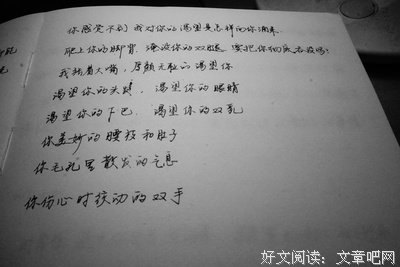 你感觉不到 我对你的渴望是怎样的向你涌来
爬上你的脚背 淹没你的双腿 要把你彻底吞没吗?
我张着大嘴，厚颜无耻的渴望你
渴望你的头发，渴望你的眼睛
渴望你的下巴，渴望你的双乳
你美妙的腰肢和肚子
你毛孔里散发的气息
你伤心时绞动的双手
好文阅读：文章吧网